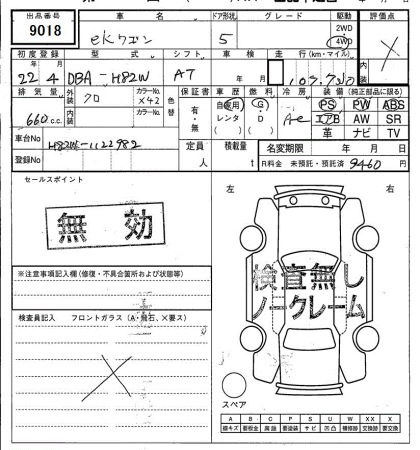 出品番号 車名 ドア形状 グレード 駆動 評価点
9018 ekワゴン 5 2WD 4WD 内 外
初度登録 型式 シフト 車検 走行(km・マイル)
22年4月 DBA-H82W AT 年 月
排気量 外装 黒 カラーNo. X42 色替 保証書 車歴 燃料 冷房 装備(純正部品に限る)
660c.c. 内装 カラーNo. 有・無 自家用 G・D Ac PS PW ABS
レンタ エアB AW SR
革 ナビ TV
車台No H82W-1122982 定員 人 積載量 t 名変期限 年 月 日
登録No R料金 未預託・預託済 9460円
セールスポイント
無効
左 右
検査無し
ノークレーム
※注意事項記入欄(修復・不具合箇所および状態等)
検査員記入 フロントガラス(A・飛石、×要ス)
スペア
A B C P S U W X XX
線キズ 要板金 腐蝕 要塗装 サビ 凹凸 補修跡 交換跡 要交換